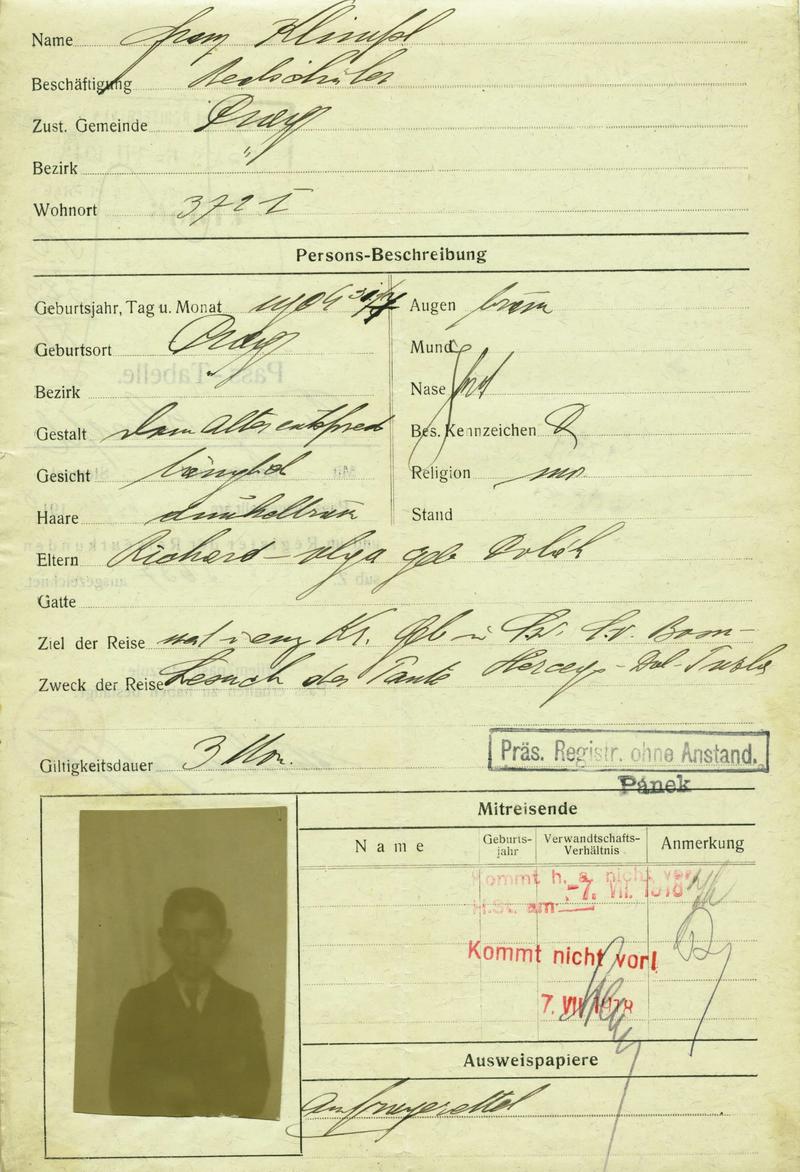 Name Franz Klimpl
Beschäftigung Realschüler
Zust. Gemeinde Prag
Bezirk "
Wohnort 372 I
Persons-Beschreibung
Geburtsjahr, Tag u. Monat
Geburtsort Prag
Bezirk "
Gestalt dem Alter entspred
Gesicht länglich
Haare dunkelbraun
Augen braun
Mund
Nase
Bes. Kennzeichen
Religion mos
Stand
Eltern Richard - Olga geb
Gatte
Ziel der Reise
Zweck der Reise Besuch der Tante Herceg - Dol-Tuzla
Giltigkeitsdauer 3 Mon.
Präs. Registr. ohne Anstand.
Pánek
Mitreisende
Name Geburts-jahr Verwandtschafts-Verhältnis Anmerkung
Kommt h. a. nicht vor
H.St. am -7. VII. 1918
Kommt nicht vor!
7. VII 1918
Ausweispapiere
Pass-Tabelle.